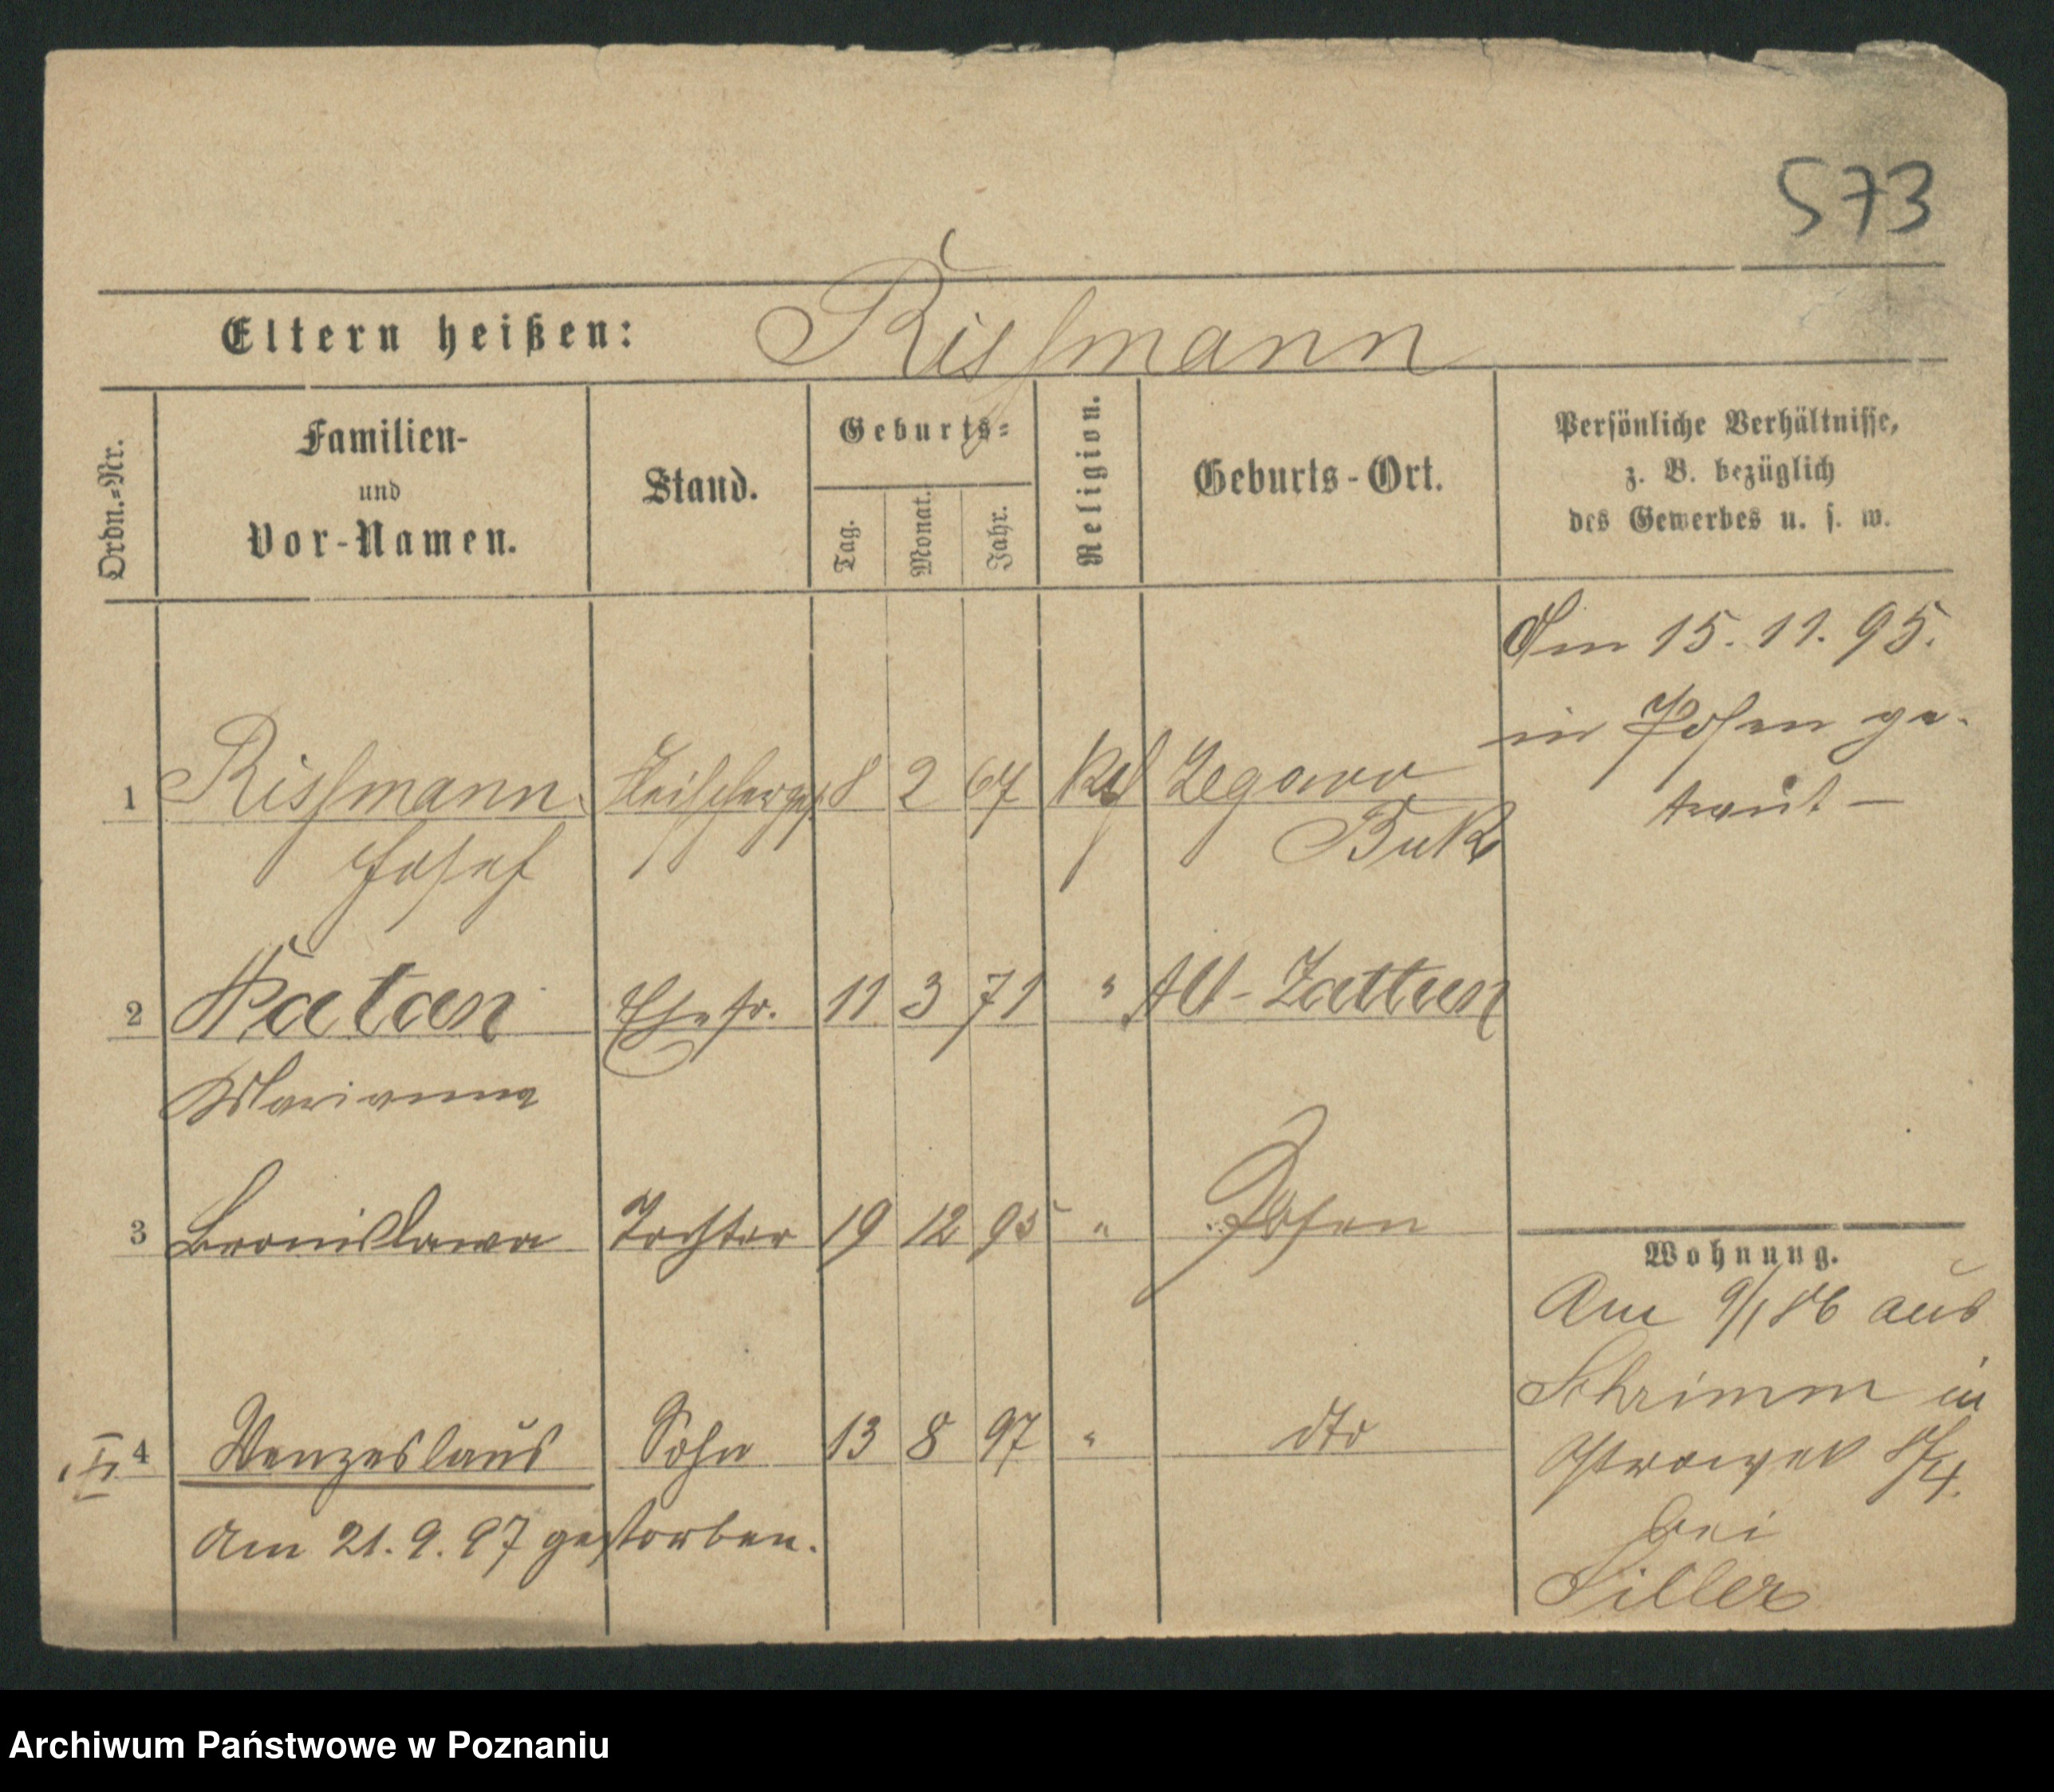 573
Eltern heißen: Rissmann
Ordn.=Nr.
Familien-
und
Vor-Namen.
Stand.
Geburts=
Tag.
Monat.
Jahr.
Religion.
Geburts-Ort.
Persönliche Verhältnisse,
z. B. bezüglich
des Gewerbes u. s. w.
Am 15. 11. 95.
in Posen ge-
traut —
1 Rissmann Fleischerges 8 2 67 Kath Zegowo
Josef Buk
2 Patan Ehefr. 11 3 71 " Alt-Zattum
Marianna
3 Bronislawa Tochter 19 12 95 " Posen
4 Wenzeslaus Sohn 13 8 97 " dto
Am 21. 9. 97 gestorben.
Wohnung.
Am 9/1 86 aus
Schrimm in
Ostrowek
bei
Siller
Archiwum Państwowe w Poznaniu